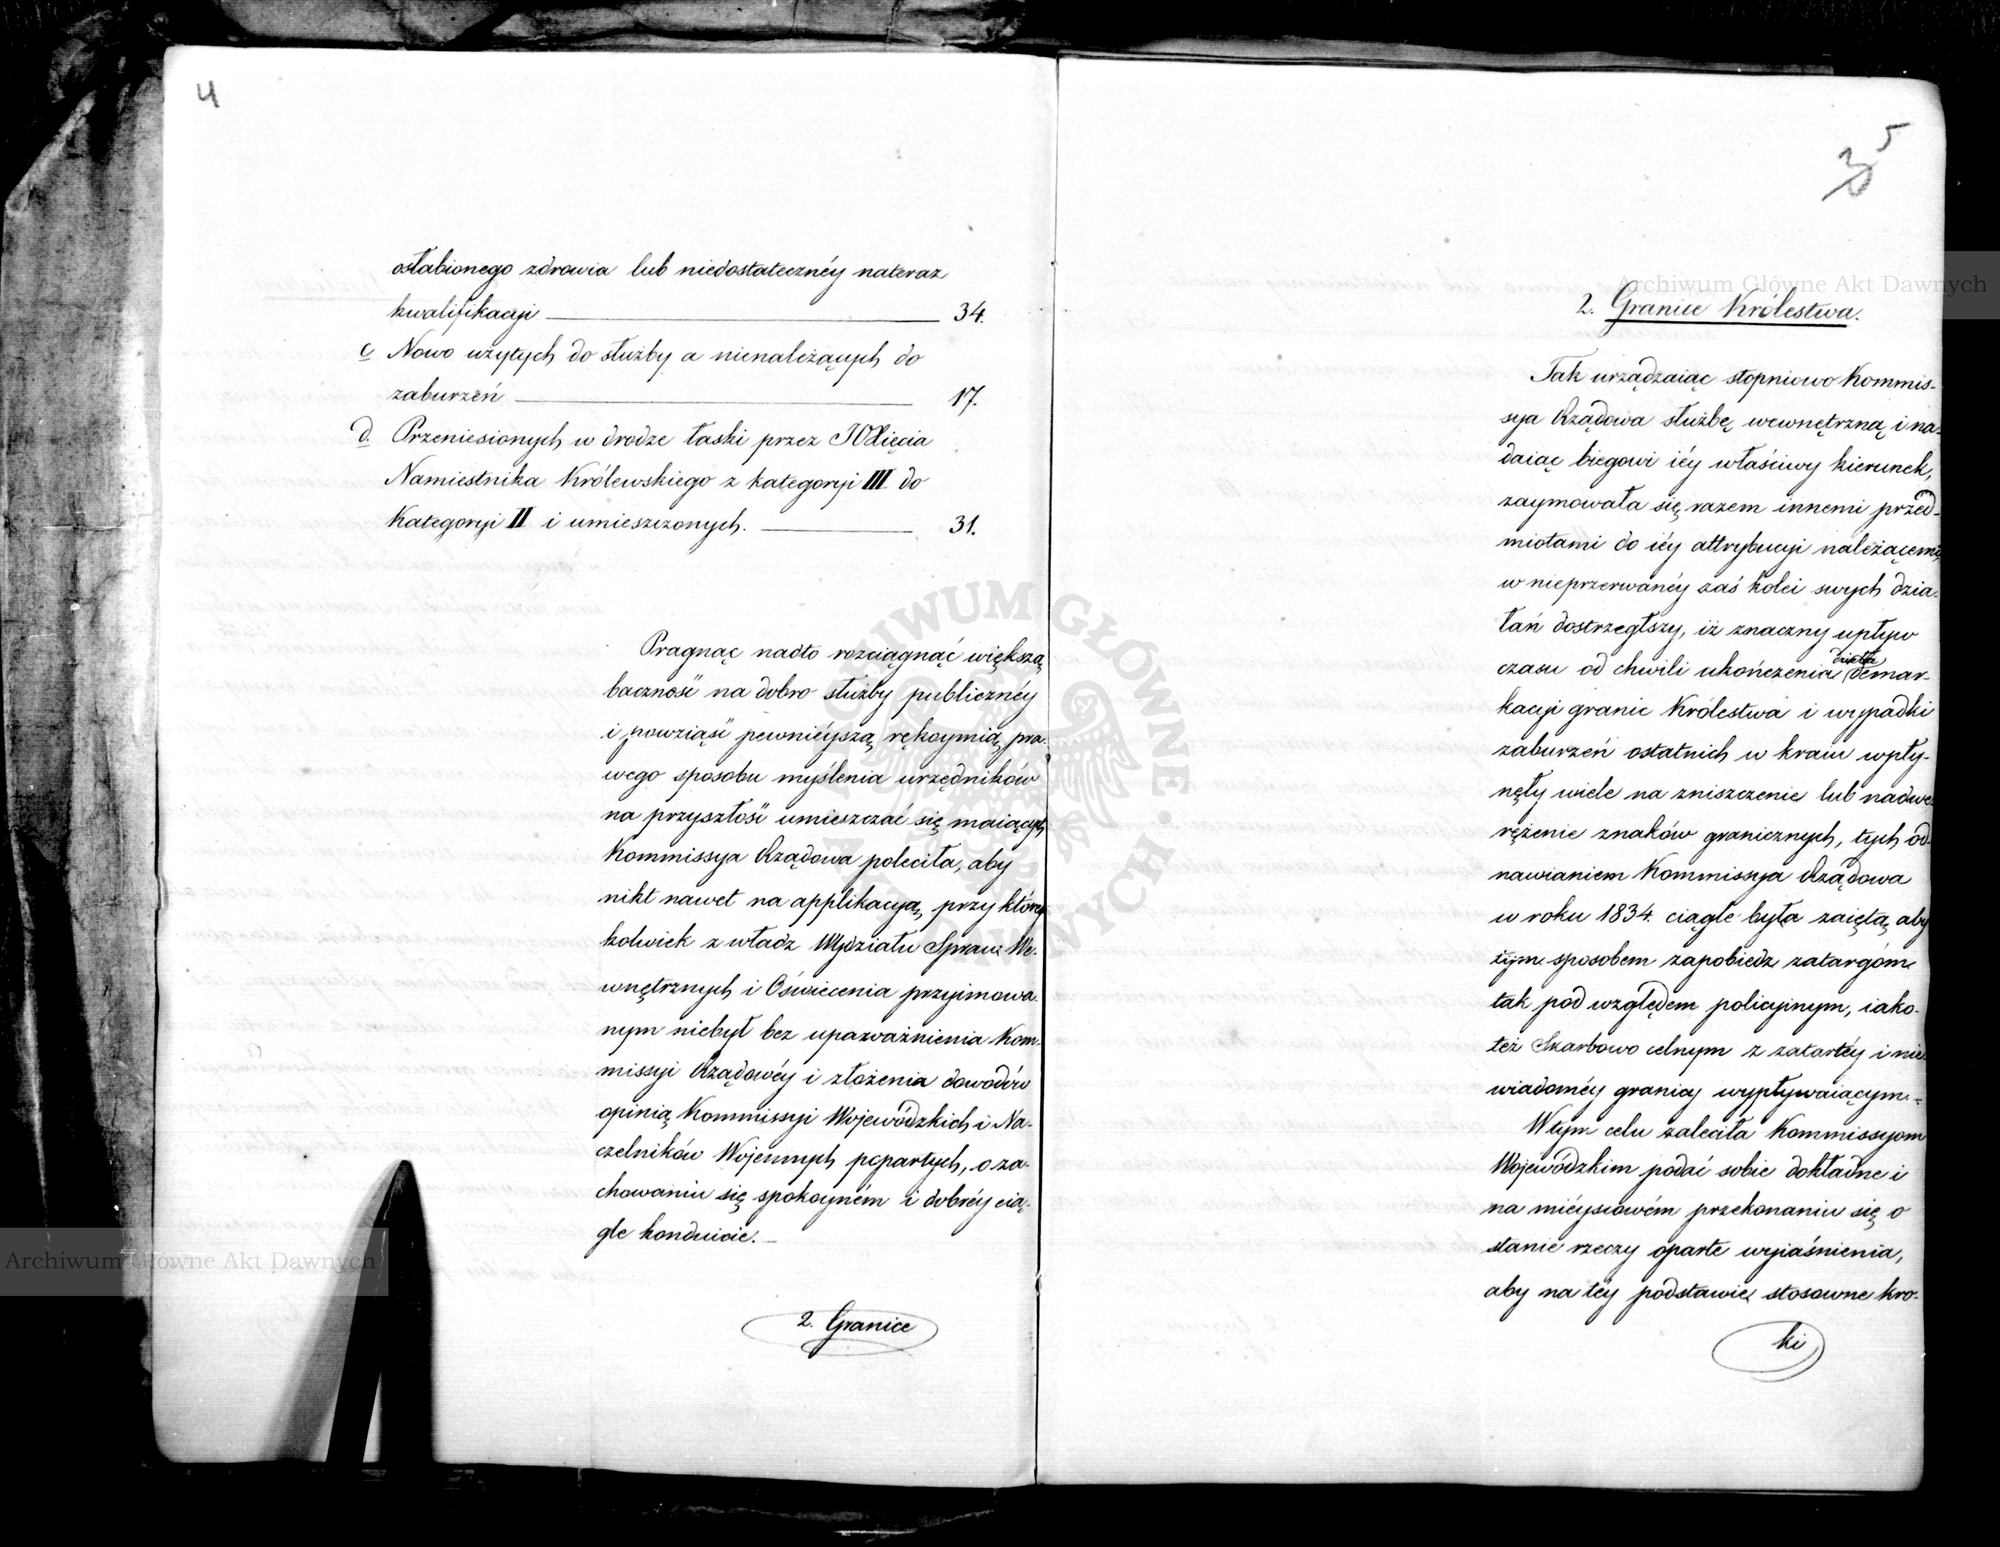 4
osłabionego zdrowia lub niedostatecznéy nateraz
kwalifikacyi 34.
c. Nowo użytych do służby a nienależących do
zaburzeń 17.
d. Przeniesionych w drodze łaski przez JOXięcia
Namiestnika Królewskiego z kategoryi III do
Kategoryi II i umieszczonych. 31.
Pragnąc nadto rozciągnąć większą
baczność na dobro służby publicznéy
i powziąść pewnieyszą rękoymią pra-
wego sposobu myślenia urzędników
na przyszłość umieszczać się maiących
Kommissya Rządowa poleciła, aby
nikt nawet na applikacyą przy któréy
kolwiek z władz Wydziału Spraw We-
wnętrznych i Oświecenia przyimowa-
nym niebył bez upoważnienia Kom-
missyi Rządowéy i złożenia dowodów
opinią Kommissyi Wojewódzkich i Na-
czelników Wojennych popartych, o za-
chowaniu się spokoyném i dobréy cią-
gle konduicie.
2. Granice
5
3
2. Granice Królestwa.
Tak urządzaiąc stopniowo Kommis-
sya Rządowa służbę wewnętrzną i na-
daiąc biegowi iéy właściwy kierunek,
zaymowała się razem innemi przed-
miotami do iéy attrybucyi należącemi,
w nieprzerwanéy zaś kolei swych dzia-
łań dostrzegłszy, iż znaczny upływ
czasu od chwili ukończenia dzieła demar-
kacyi granic Królestwa i wypadki
zaburzeń ostatnich w kraiu wpły-
nęły wiele na zniszczenie lub nadwe-
rężenie znaków granicznych, tych od-
nawianiem Kommissya Rządowa
w roku 1834. ciągle była zaiętą aby
tym sposobem zapobiedz zatargóm
tak pod względem policyjnym, iako-
też Skarbowo celnym z zatartéy i nie
wiadoméy granicy wypływaiącym.
W tym celu zaleciła Kommissyom
Wojewódzkim podać sobie dokładne i
na mieyscowém przekonaniu się o
stanie rzeczy oparte wyiaśnienia,
aby na téy podstawie stosowne kro-
ki
Archiwum Główne Akt Dawnych
Archiwum Główne Akt Dawnych